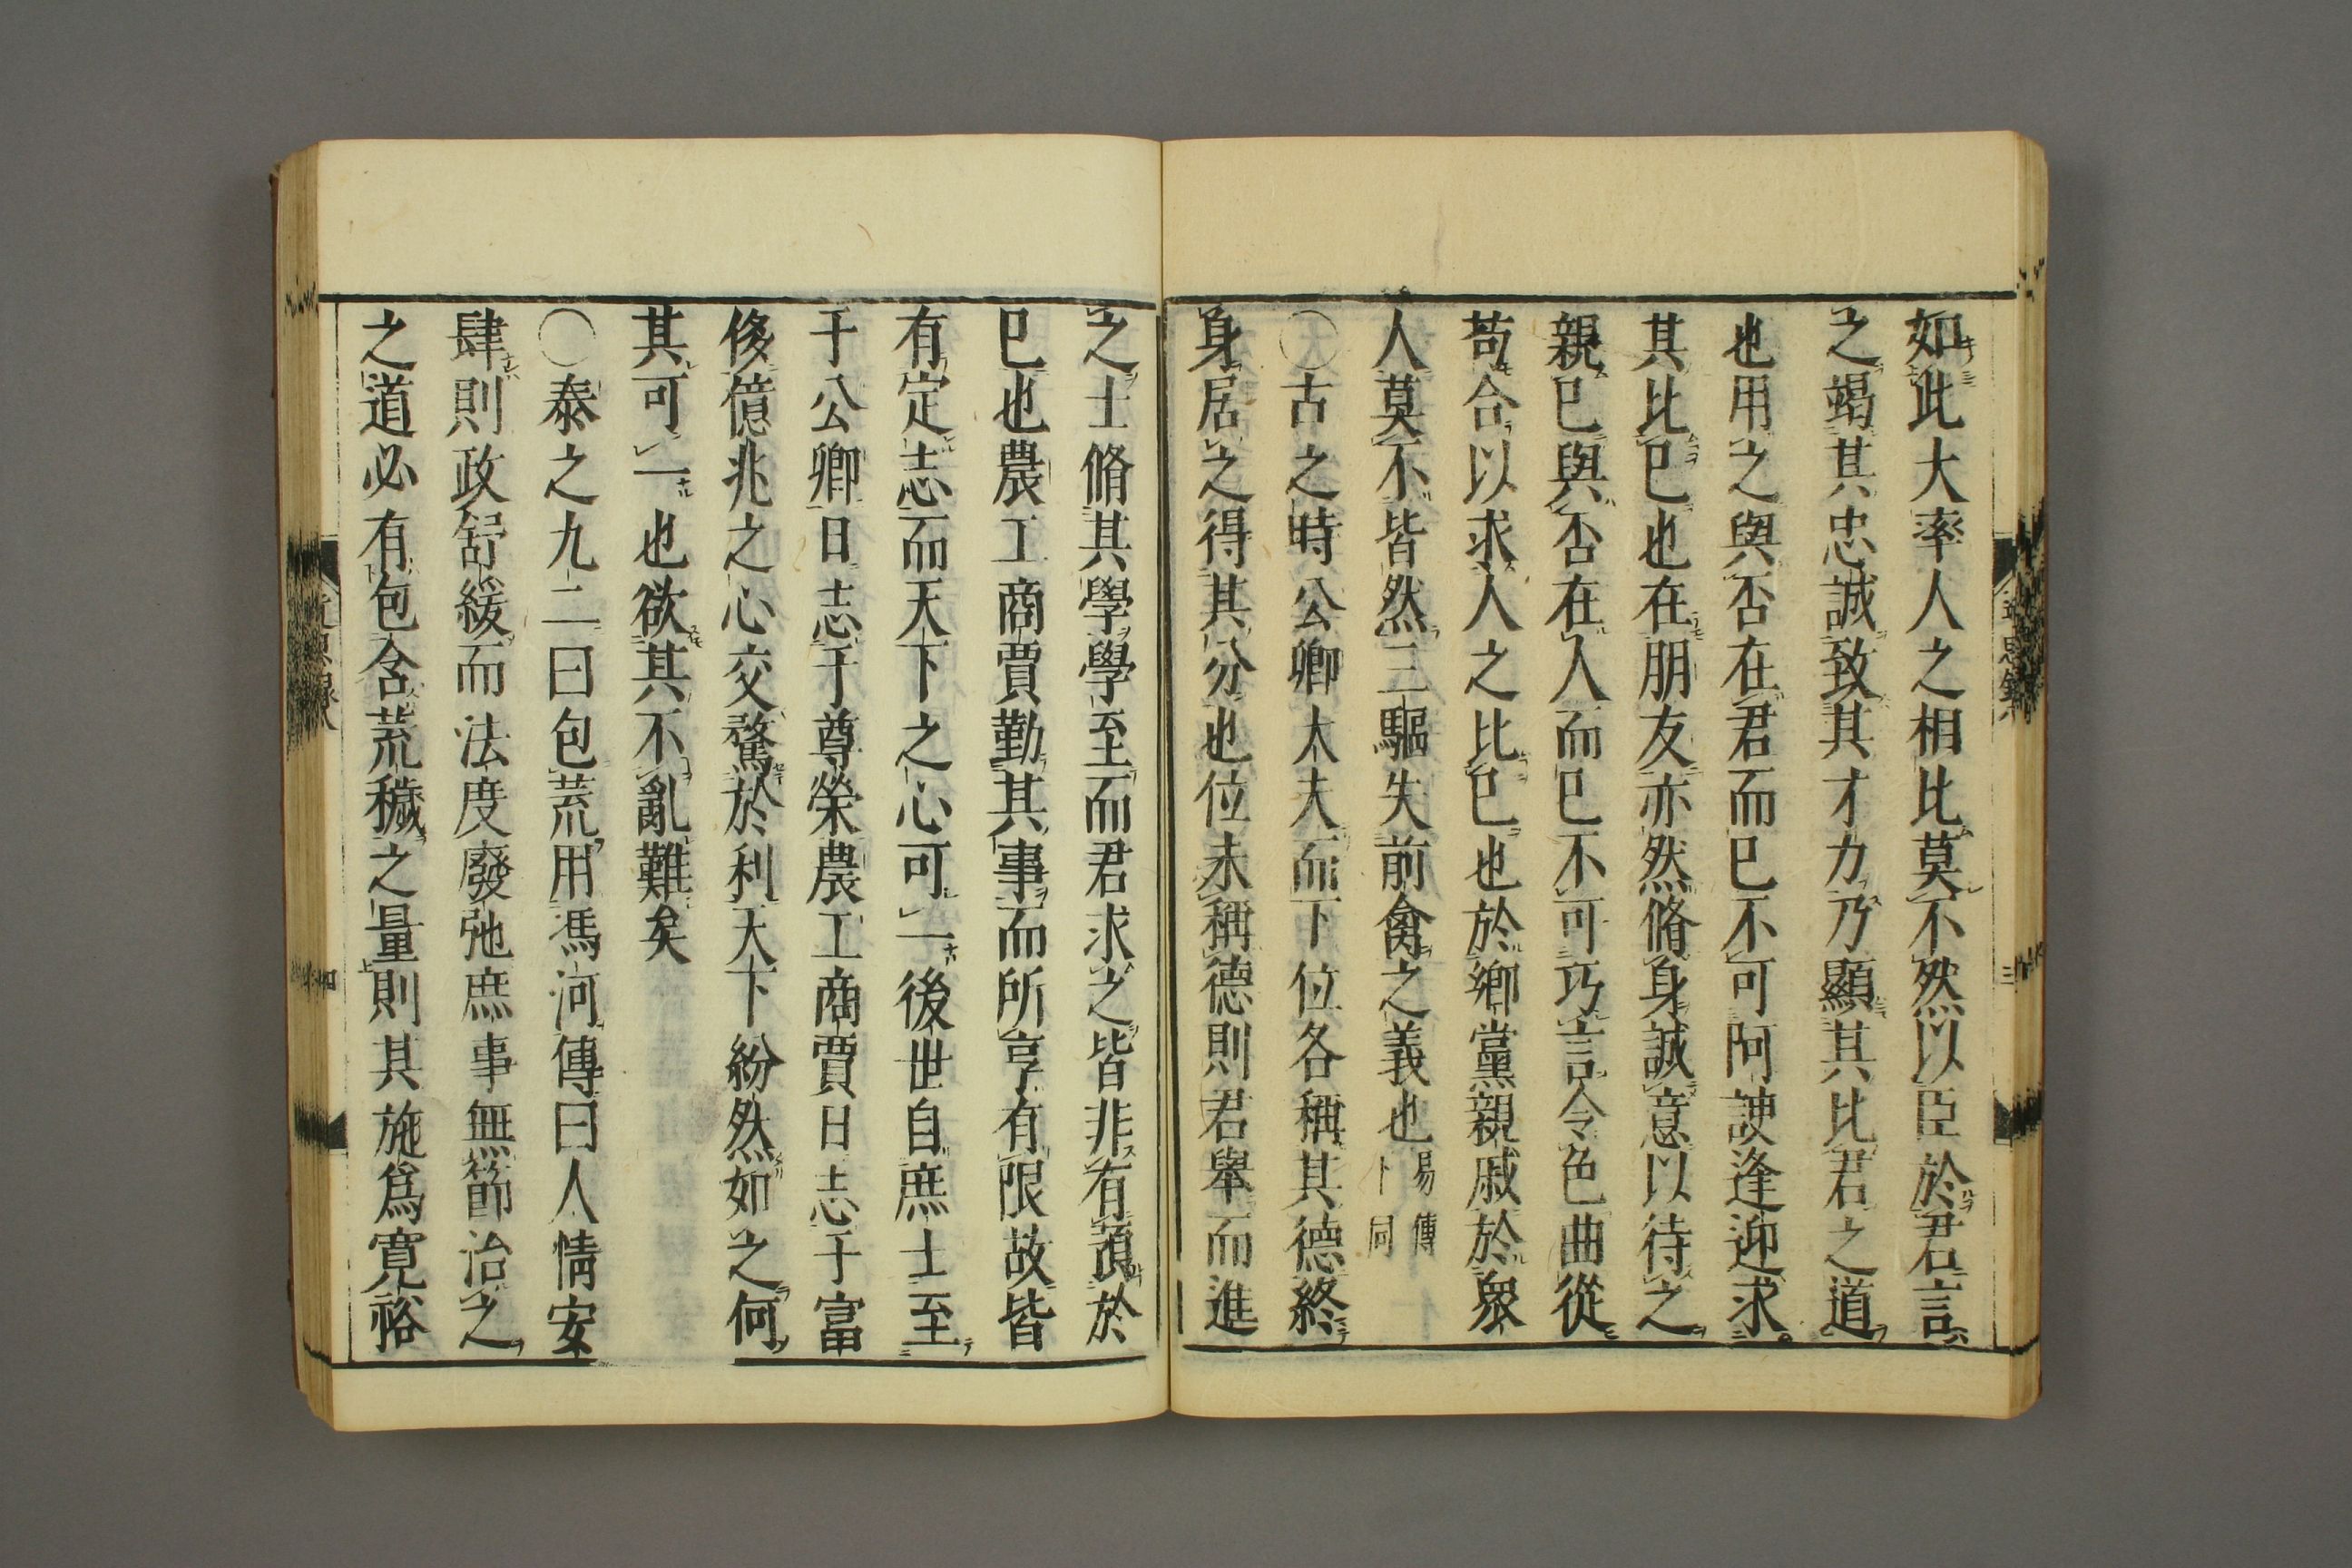 如此大率人之相比莫不然以臣於君言
之竭其忠誠致其才力乃顯其比君之道
也用之與否在君而已不可阿諛逢迎求
其比已也在朋友亦然脩身誠意以待之
親已與否在人而已不可巧言令色曲從
苟合以求人之比已也於鄉黨親戚於衆
人莫不皆然三驅失前禽之義也易傳下同
〇古之時公卿大夫而下位各稱其德終
身居之得其分也位未稱德則君舉而進
之士脩其學學至而君求之皆非有預於
已也農工商賈勤其事而所享有限故皆
有定志而天下之心可一後世自庶士至
于公卿日志于尊榮農工商賈日志于富
侈億兆之心交騖於利天下紛然如之何
其可一也欲其不亂難矣
〇泰之九二曰包荒用馮河傳曰人情安
肆則政舒緩而法度廢弛庶事無節治之
之道必有包含荒穢之量則其施爲寬裕
近思錄
三
四